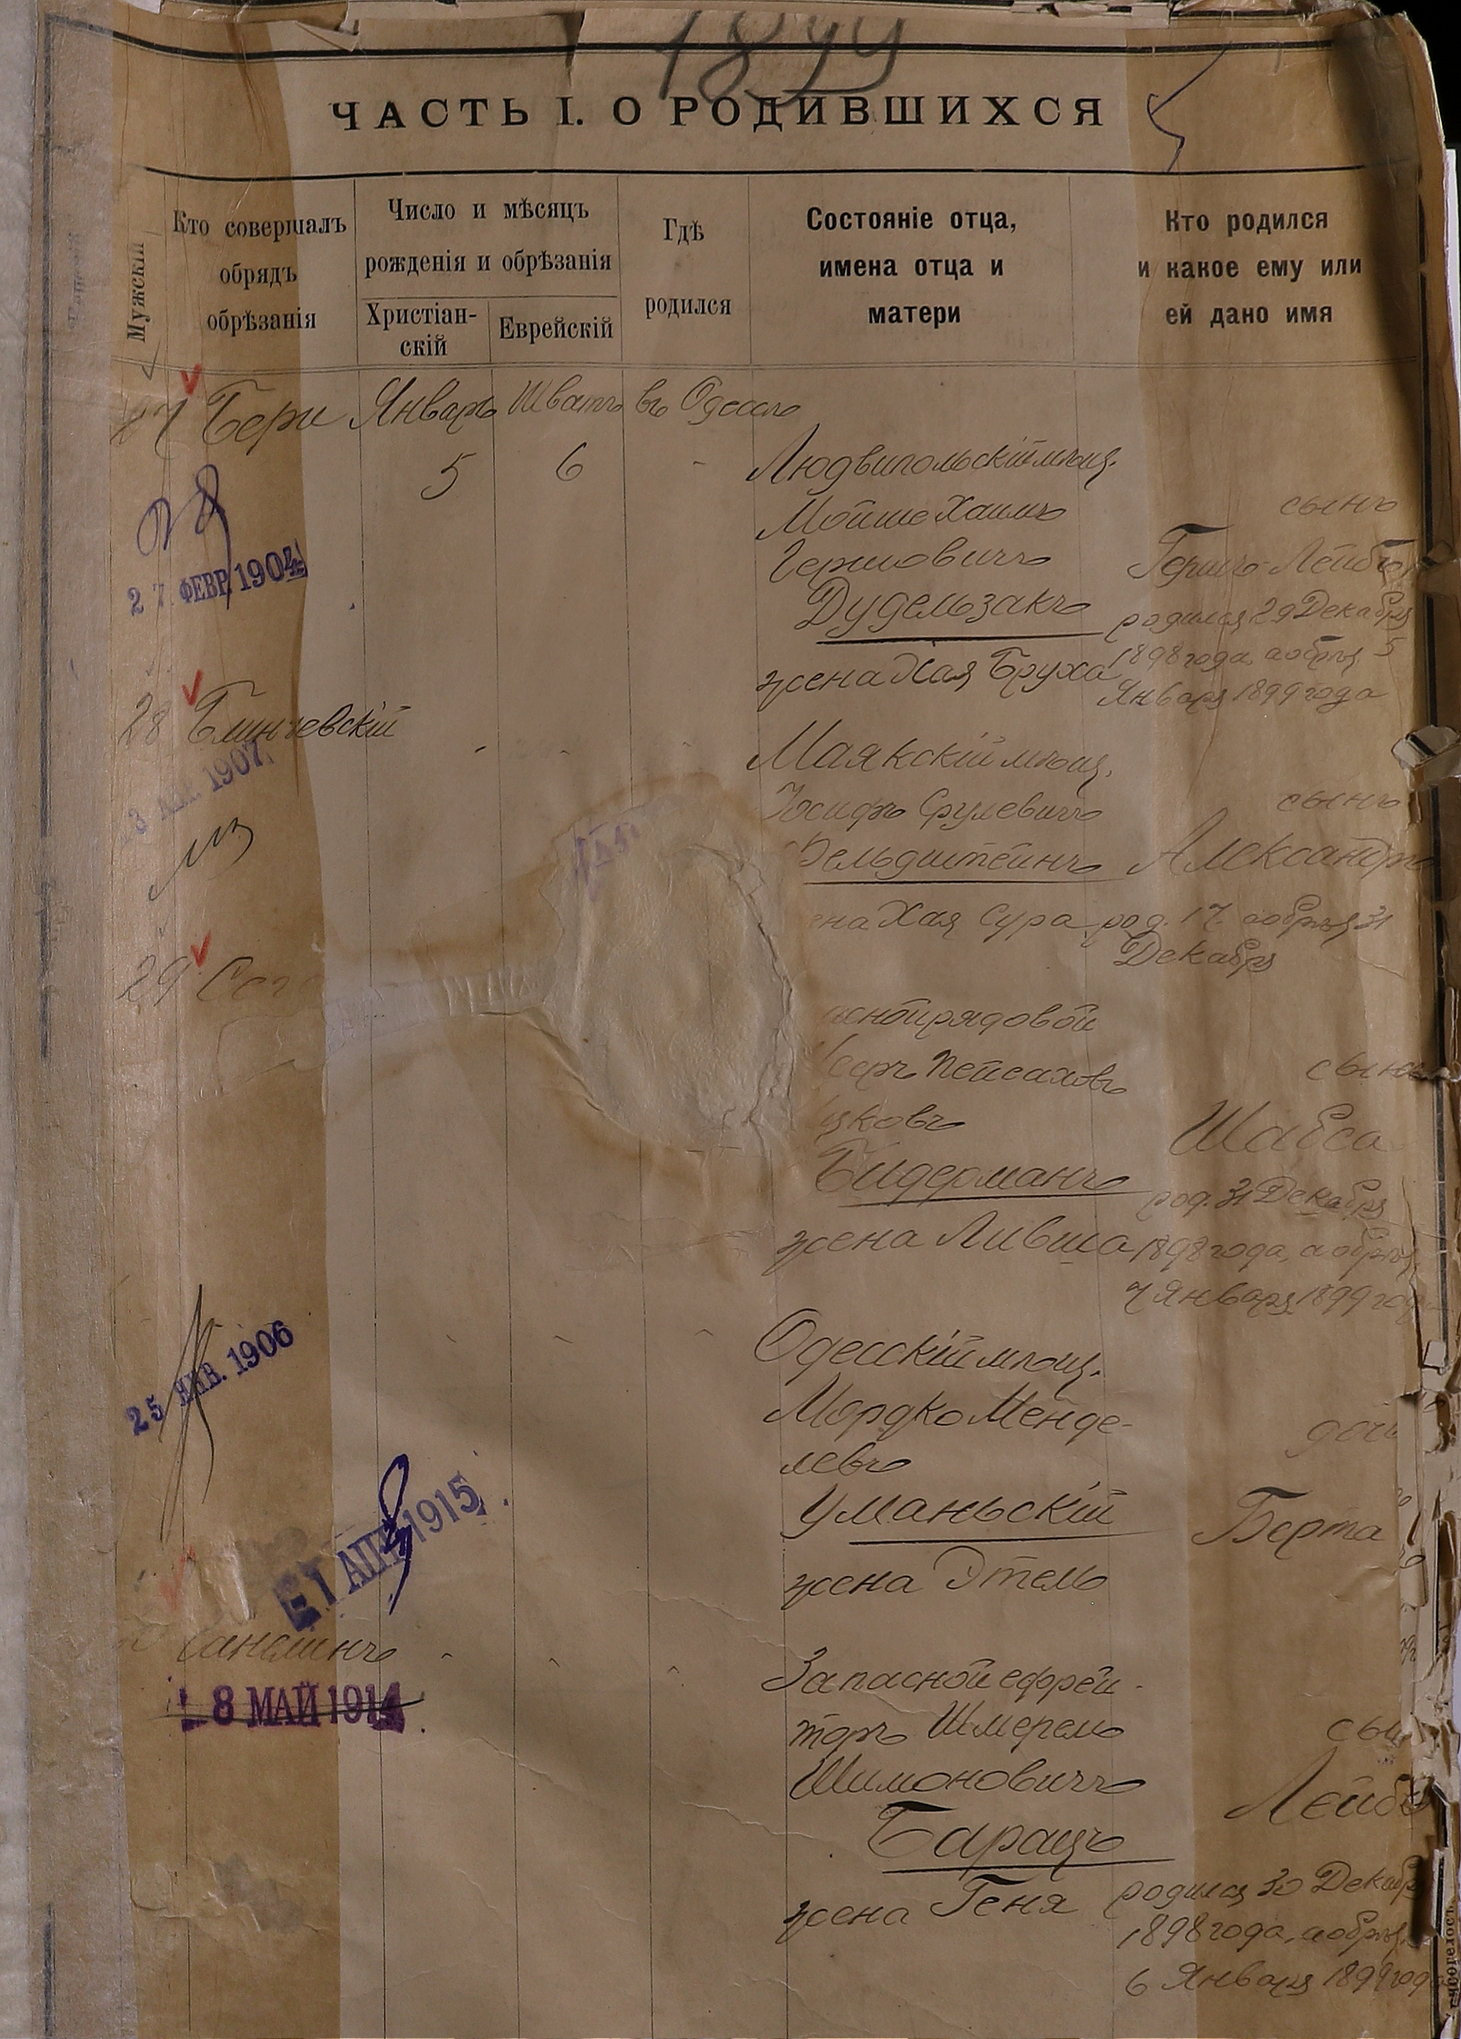 1899
ЧАСТЬ I. О РОДИВШИХСЯ
Мужскій
Кто совершалъ
обрядъ
обрѣзанія
Число и мѣсяцъ
рожденія и обрѣзанія
Христіан-
скій
Еврейскій
Гдѣ
родился
Состояніе отца,
имена отца и
матери
Кто родился
и какое ему или
ей дано имя
27 Бери Январь Шватъ въ Одессѣ
5 6 - Людвипольскій мѣщ.
Мойше Хаимъ
Гершовичъ
Дудельзакъ
жена Хая Бруха
сынъ
Гершъ-Лейбъ
родился 29 Декабря
1898 года, а обрѣз 5
Января 1899 года
27 ФЕВР. 1904
28 Блинчевскій
1907
Маякскій мѣщ.
Іосифъ Срулевичъ
Фельдштейнъ
Хая Сура
сынъ
Александръ
род. 17 а обрѣз 31
Декабря
29
рядовой
Пейсаховъ
Бидерманъ
жена Ливша
сынъ
Шабса
род. 31 Декабря
1898 года, а обрѣз.
7 Января 1899 года
25 ЯНВ. 1906
Одесскій мѣщ.
Мордко Менде-
левъ
Уманьскій
жена Этель
дочь
Берта
21 АПР 1915
18 МАЙ 1914
Запасной ефрей-
торъ Шмерель
Шимоновичъ
Барацъ
жена Геня
сынъ
Лейбъ
родился 30 Декабр
1898 года, а обрѣз.
6 Января 1899 года